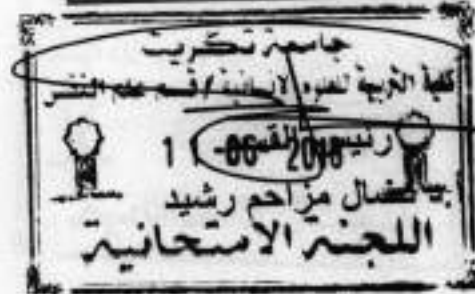 جامعة تكريت
كلية التربية للعلوم الانسانية / قسم علم النفس
رئيس القسم
11 -06- 2018
نضال مزاحم رشيد
اللجنة الامتحانية